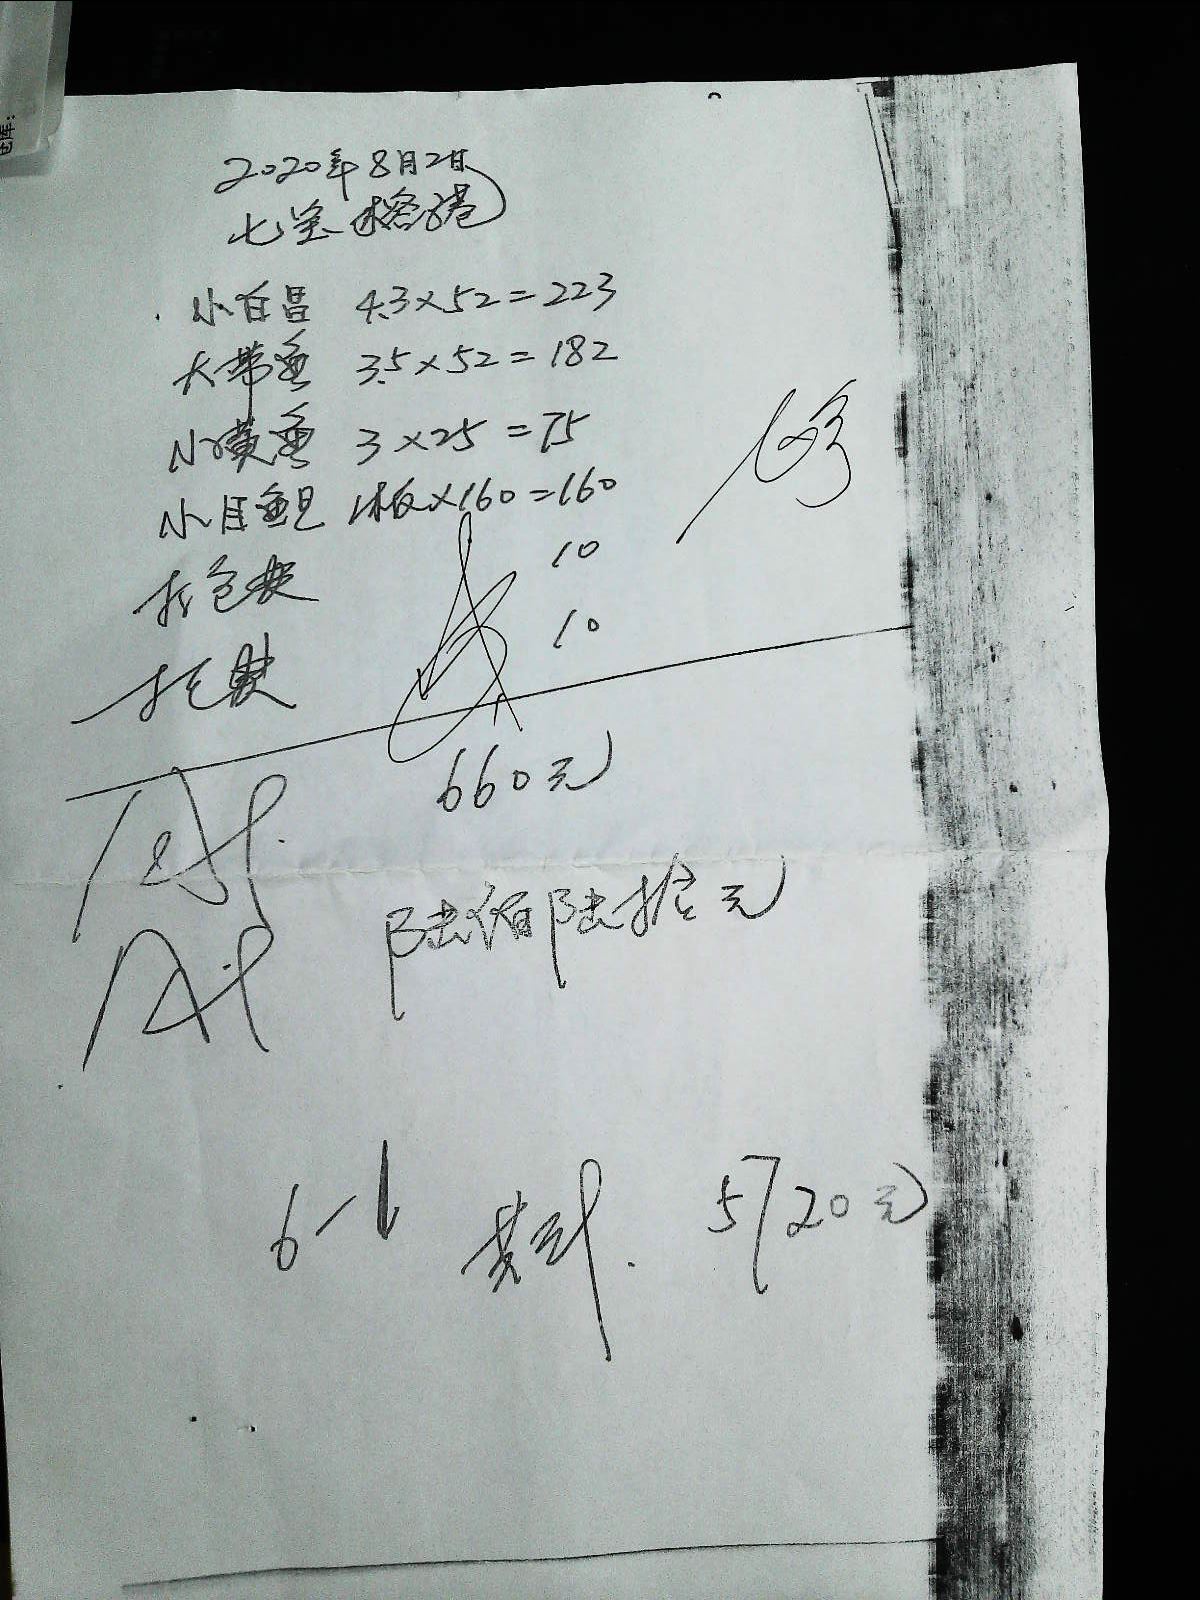 2020年8月2日
七宝榕港
小白昌 4.3×52=223
大带鱼 3.5×52=182
小黄鱼 3×25=75
小目鱼旦 1板×160=160
打包费 10
托费 10
660元
陆佰陆拾元
6-1 共计. 5720元